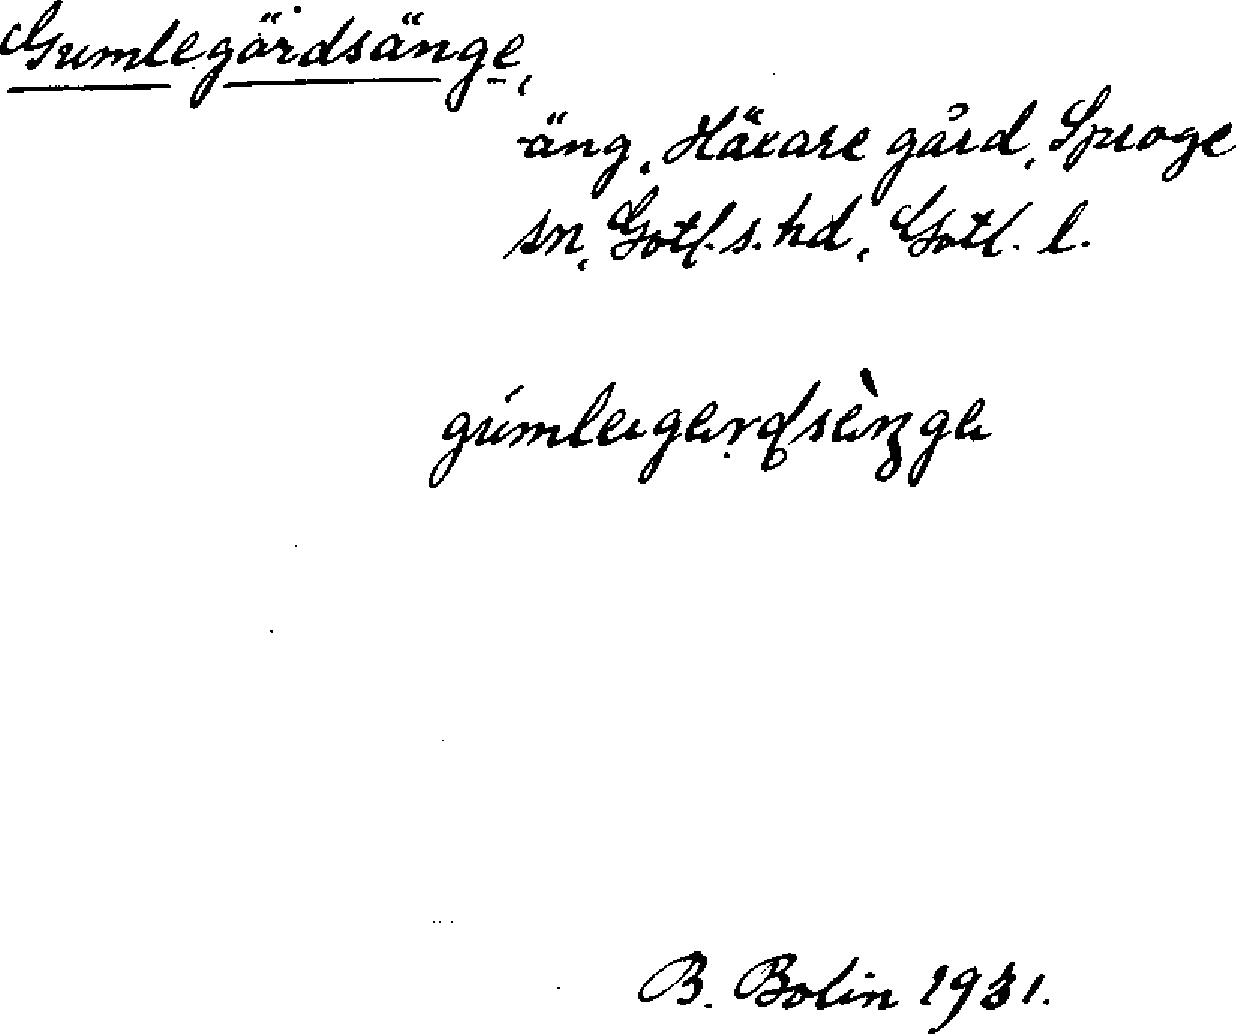 Gumlegärdsänge,
äng, Häxare gård, Sproge
sn, Gotl. s. hd, Gotl. l.
B. Bolin 1931.